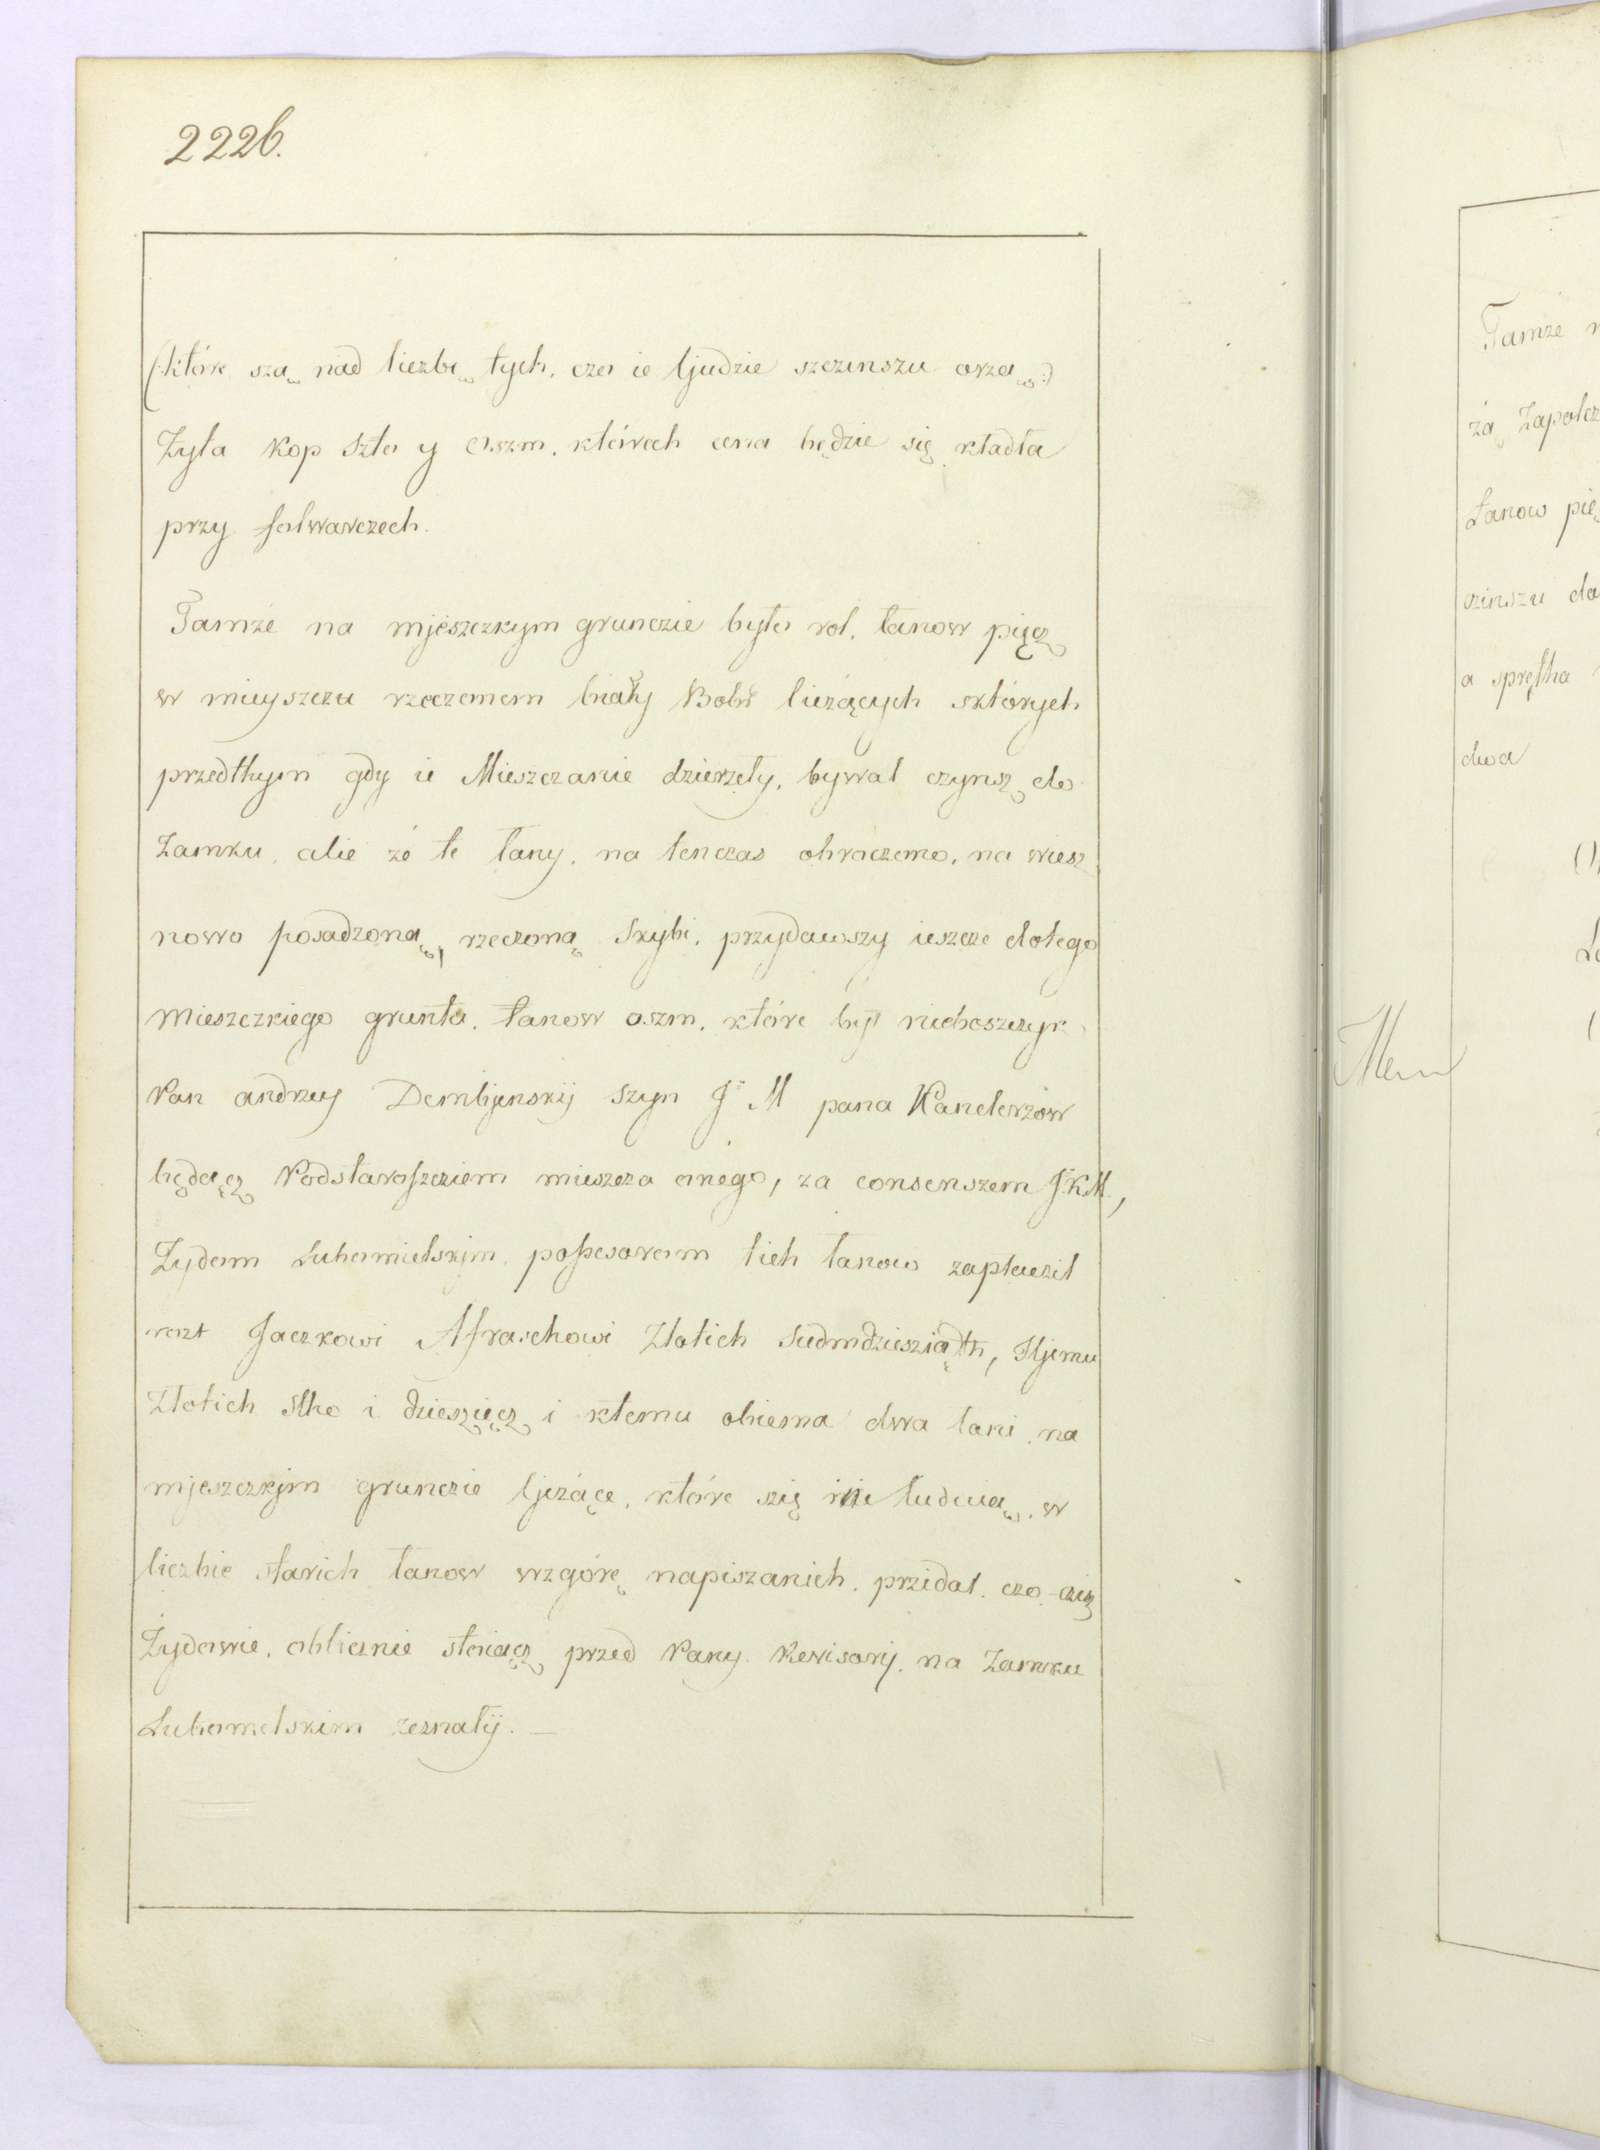 2226.
(które szą nad liczbę tych, czo ie ljudzie szczinszu orzą:)
Żyta kop Szto y Oszm, którech cena będzie się kładła
przy folwarczech.
Tamże na mjeszczkym gruncie było rol, łanow pięcz
w mieyszczu rzeczemem biały Bobr liezących sktórych
przedthym gdy ie Mieszczanie dzierzely, bywal czynsz do
Zamku, alie że te łany, na tenczas obroczemo, na wiesz
nowo posadzoną, rzeczoną Skybi, przydawszy ieszcze dotego
Mieszczkiego grunta, łanow oszm, które był nieboszczyk
Pan andrzey Dembjenskij Szyn J M pana Kanclerzow
będącz Podstaroszcziem mieszcza onego, za consenszem J.K.M.,
Żydom Lubomielskjm, possesorom tich łanow zaplaczil
Jaczkowi Afraschowi Zlotich Siedmdziesziąth, Iljemu
Zlotich stho i dzieszięcz i ktemu obiema dwa lani, na
mjeszczkjm gruncie ljeżące, które szię nie ludcią, w
liczbie starich łanow wzgórę napiszanich, przidal, czo ciż
Żydowie, oblicznie stoiącz przed Pany Rewisorij, na Zamku
Lubomelskim zeznalÿ. —
Tamże
żą Zapolcz
Łanow pię
czinszu do
a sprętha
dwa